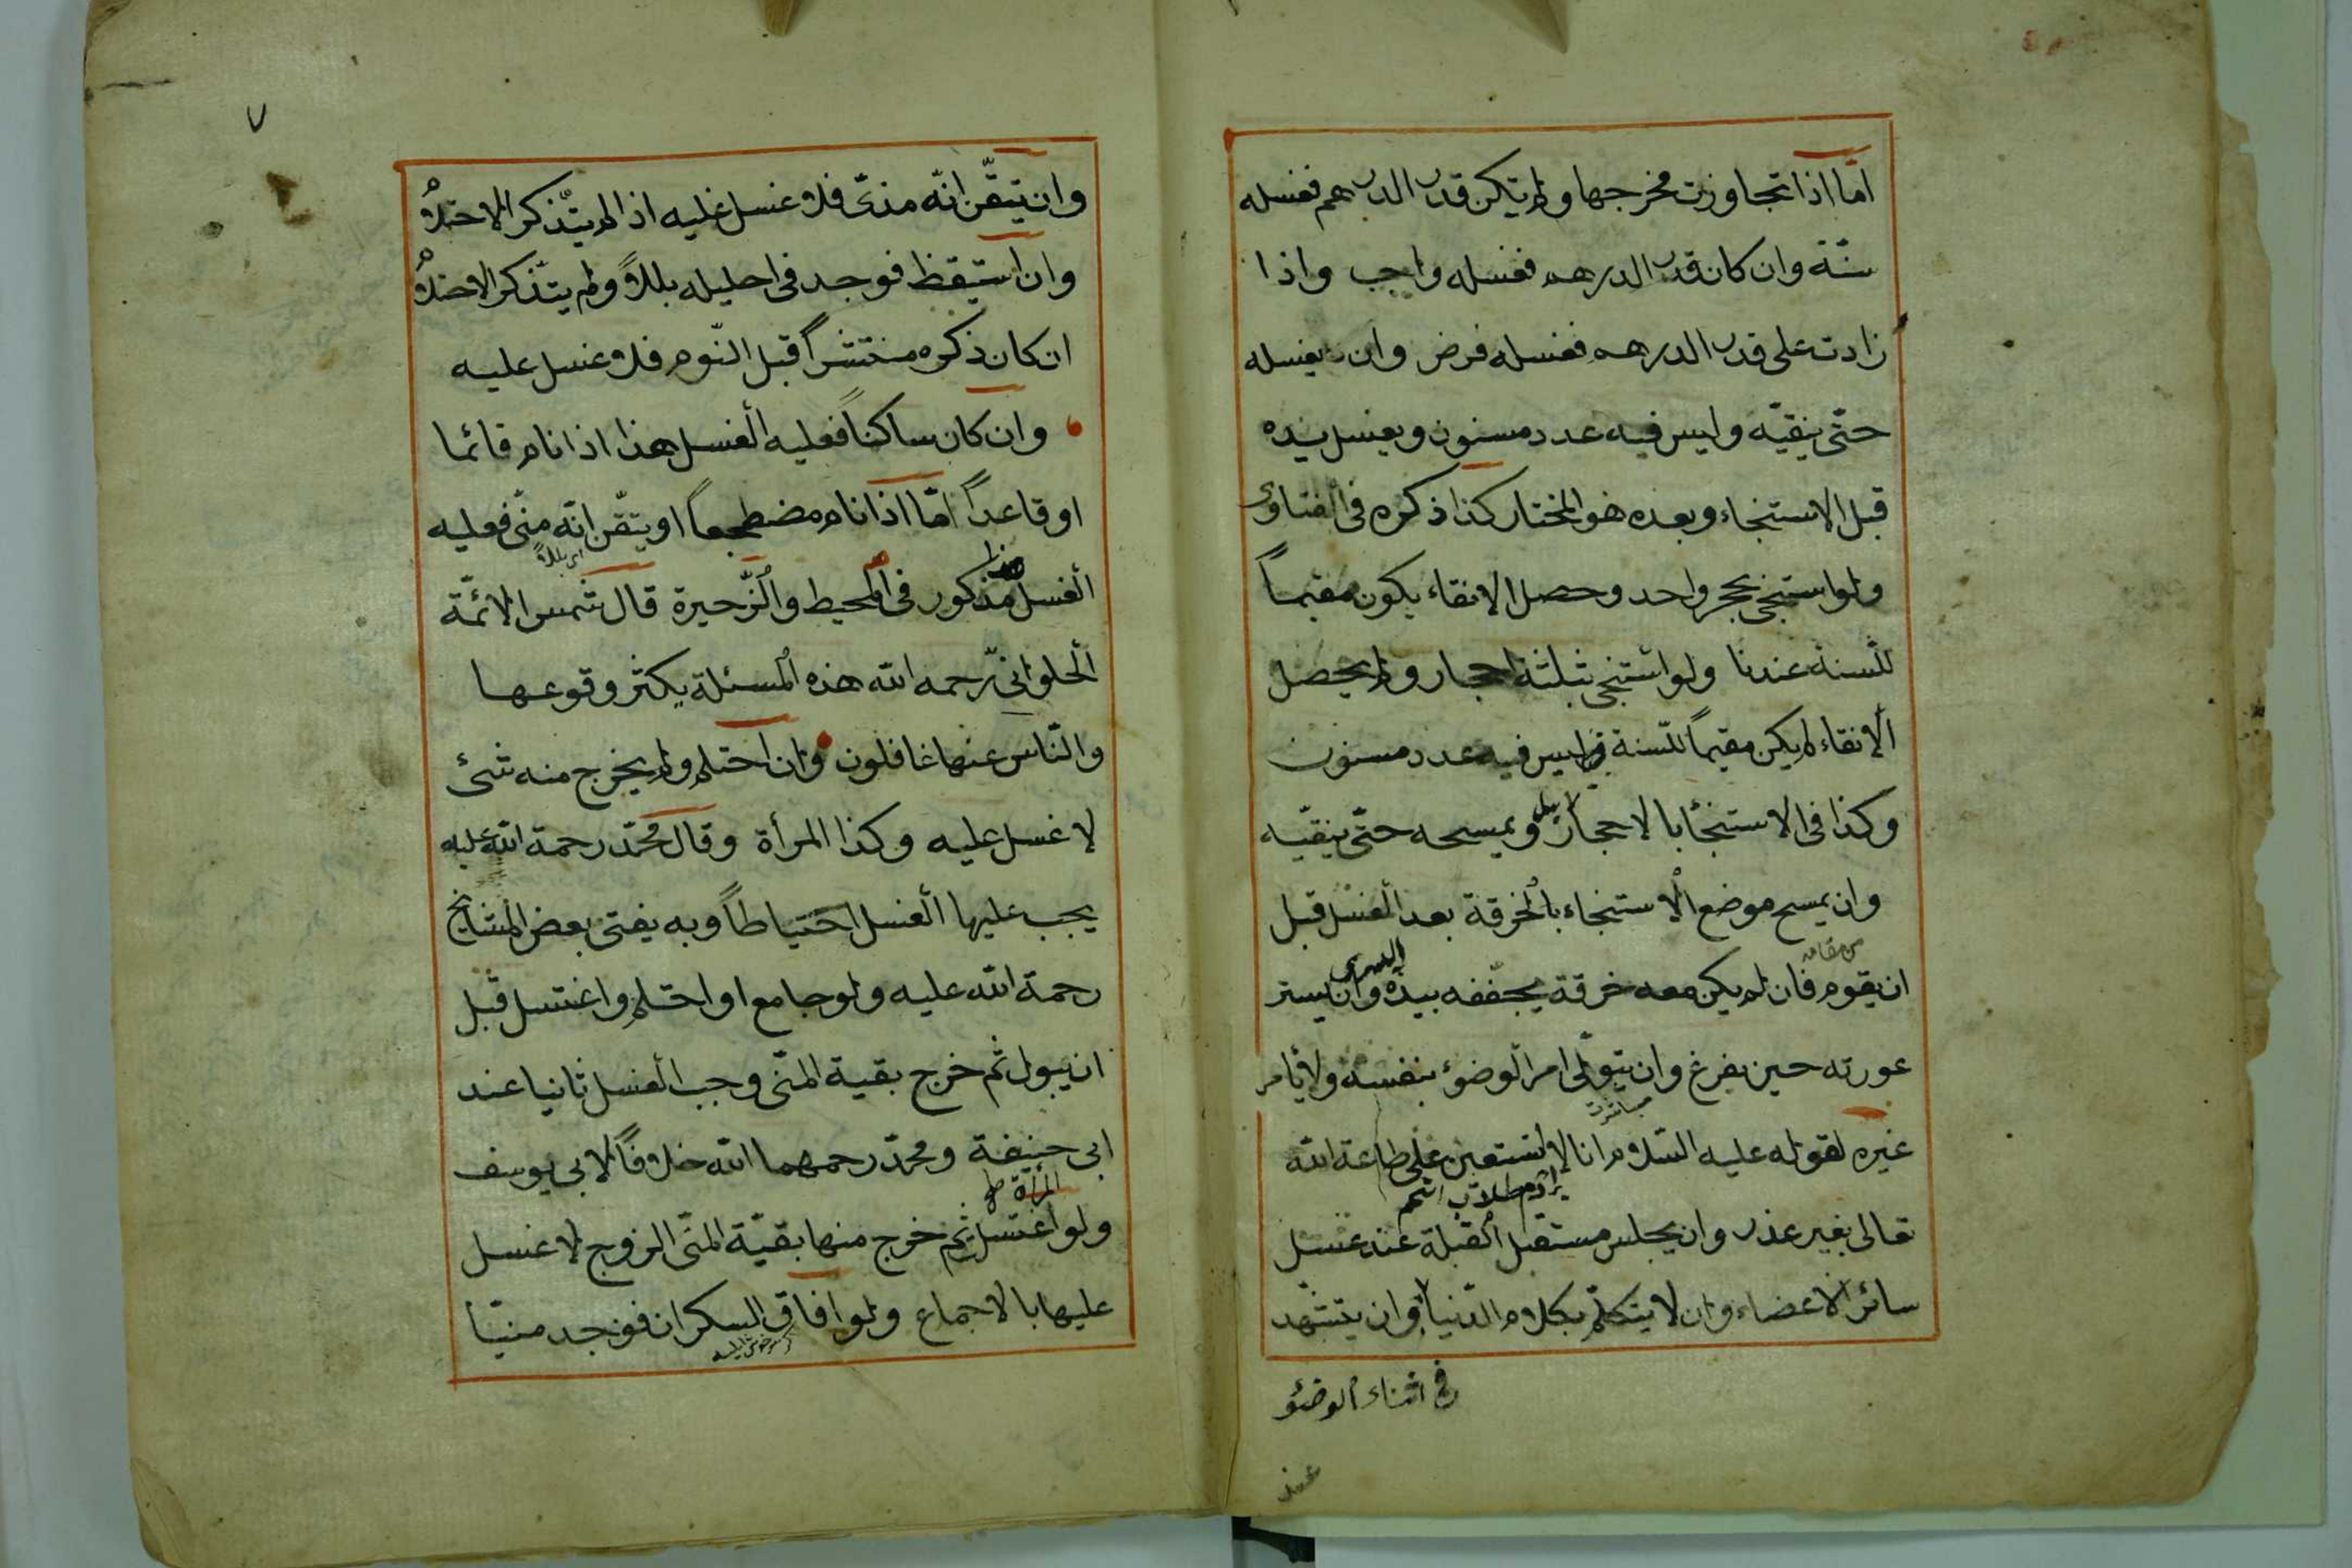 اما اذا تجاوزت مخرجها ولم يكن قدر الدرهم فغسله
سنّة وان كان قدر الدرهم فغسله واجب واذا
زادت على قدر الدرهم فغسله فرض وان يغسله
حتّى ينقيّه وليس فيه عدد مسنون ويغسل يده
قبل الاستنجاء وبعده هو المختار كذا ذكره فى الفتاوى
ولو استنجى بحجر واحد وحصل الانقاء يكون مقيماً
للسنة عندنا ولو استنجى بثلثة احجار ولم يحصل
الانقاء لم يكن مقيماً للسّنة وليس فيه عدد مسنون
وكذا فى الاستنجا بالاحجار ويمسحه حتّى ينقيّه
وان يمسح موضع الاستنجاء بالخرقة بعد الغسل قبل
من مقامه
ان يقوم فان لم يكن معه خرقة يجفّفه بيده اليسرى وان يستر
عورته حين يفرغ وان يتولّى امر الوضوء بنفسه ولا يأمر
غيره لقوله عليه السّلام انا لا نستعين على طاعة الله
تعالى بغير عذر وان يجلس مستقبل القبلة عند غسل
سائر الاعضاء وان لا يتكلّم بكلام الدّنيا وان يتشهد
فى اثناء الوضوء
٧
وان تيقّن انّه مذىّ فلا غسل عليه اذا لم يتذكر الاحتلام
وان استيقظ فوجد فى احليله بللاً ولم يتذكر الاحتلام
ان كان ذكره منتشراً قبل النّوم فلا غسل عليه
وان كان ساكناً فعليه الغسل هذا اذا نام قائما
او قاعداً امّا اذا نام مضطجعاً او تيقّن انّه منّى فعليه
اى بللاً
الغسل مذكور فى المحيط والذّخيرة قال شمس الائمّة
الحلوانىّ رحمه الله هذه المسئلة يكثر وقوعها
والنّاس عنها غافلون وان احتلم ولم يخرج منه شئ
لا غسل عليه وكذا المرأة وقال محمّد رحمة الله عليه
يجب عليها الغسل احتياطاً وبه يفتى بعض المشايخ
رحمة الله عليه ولو جامع او احتلم واغتسل قبل
ان يبول ثم خرج بقية المنّى وجب الغسل ثانيا عند
ابى حنيفة ومحمّد رحمهما الله خلافاً لابى يوسف
المرأة
ولو اغتسل ثم خرج منها بقيّة المنّى الزوج لا غسل
عليها بالاجماع ولو افاق السكران فوجد منيّا